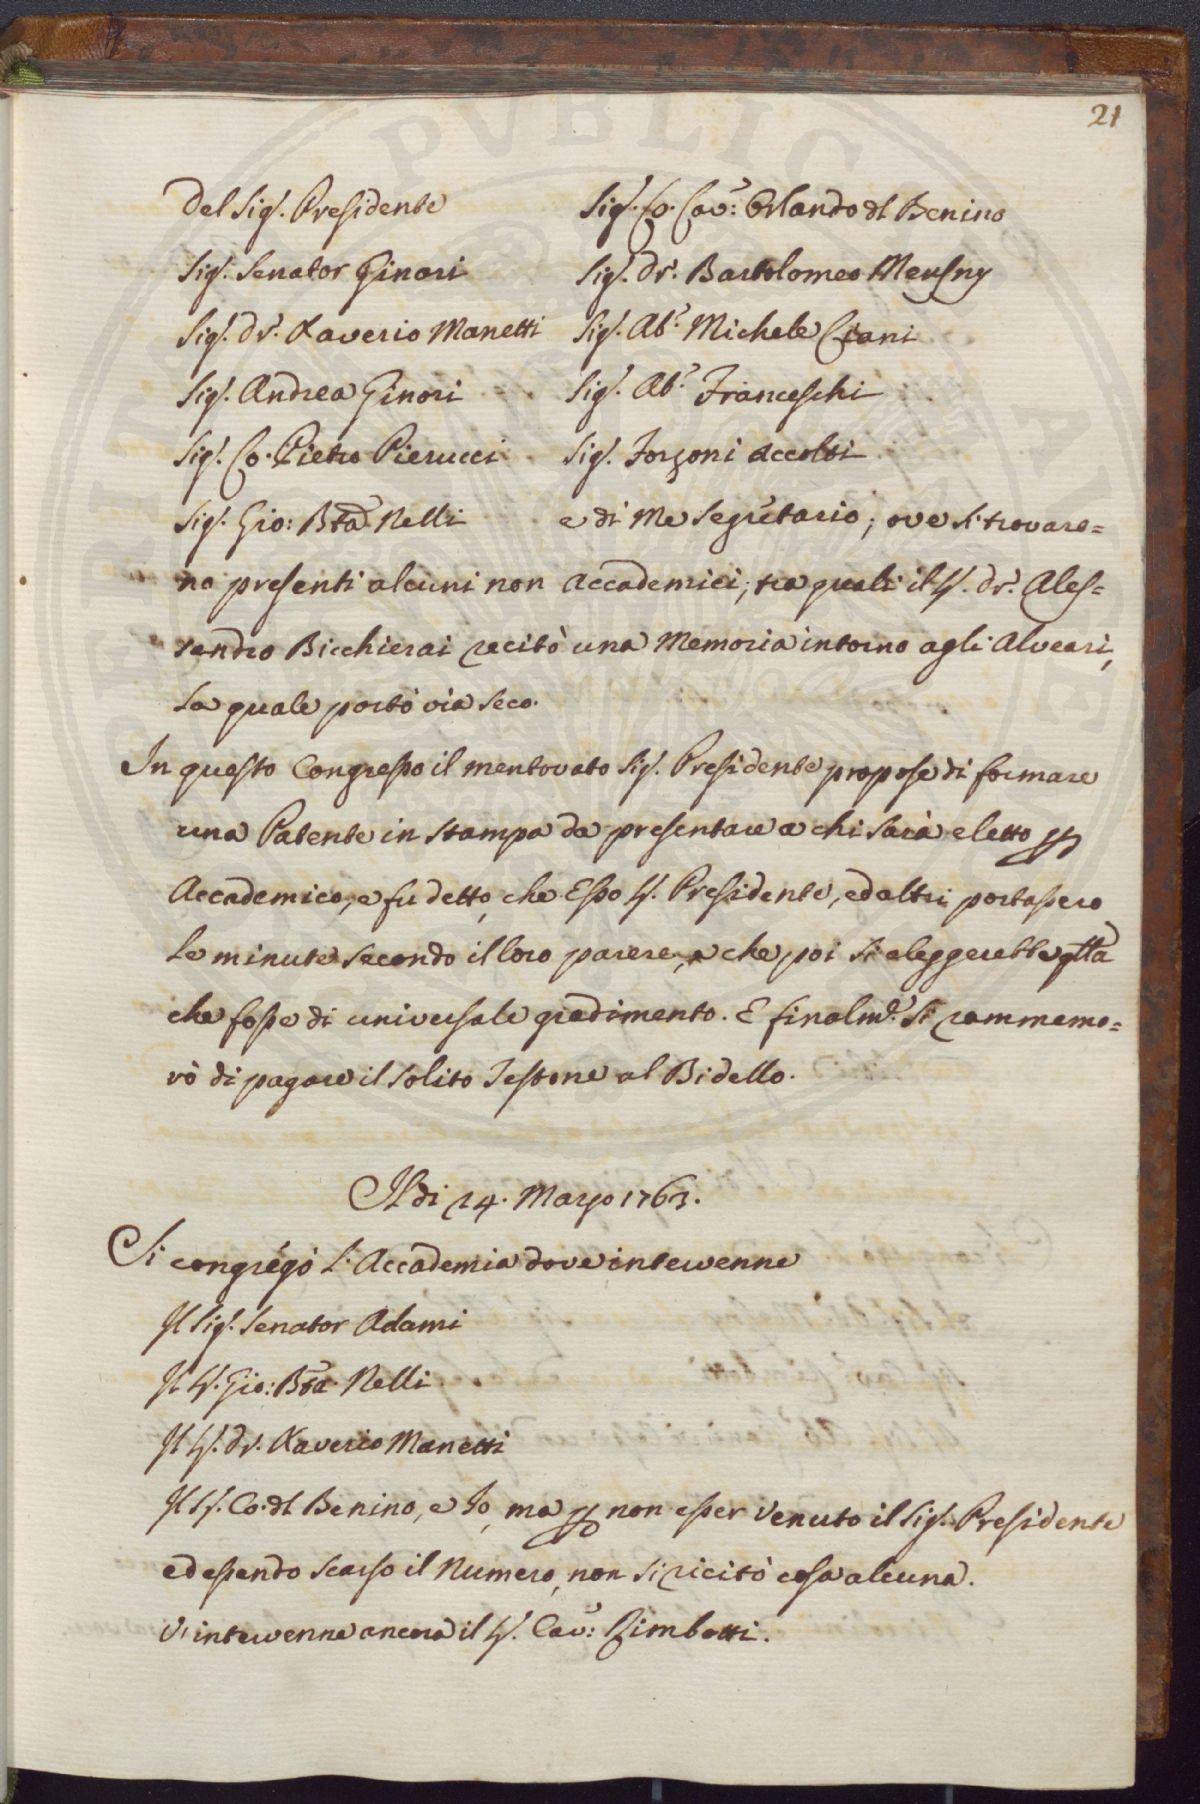 21
Del Sig.r Presidente Sig.r Co. Cav.r Orlando dl Benino
Sig.r Senator Ginori Sig.r Dr. Bartolomeo Mesny
Sig.r Dr. Xaverio Manetti Sig.r Ab.e Michele Ciani
Sig.r Andrea Ginori Sig.r Ab.e Franceschi
Sig.r Co. Pietro Pierucci Sig.r Forzoni Accolti
Sig.r Gio: Bta Nelli e di Me Segretario; ove si trovaro=
no presenti alcuni non Accademici, tra quali il S.r Dr. Ales=
sandro Bicchierai recitò una Memoria intorno agli Alveari,
la quale portò via seco.
In questo Congresso il mentovato Sig.r Presidente propose di formare
una Patente in stampa da presentare a chi sarà eletto p
Accademico, e fu detto, che Esso S.r Presidente, ed altri portassero
le minute secondo il loro parere, e che poi si eleggerebbe qlla
che fosse di universale gradimento. E finalme. si rammemo=
rò di pagare il solito Testone al Bidello.
Al di 24. Marzo 1763.
Si congregò l'Accademia dove intervenne
Il Sig.r Senator Adami
Il S.r Gio: Bta Nelli
Il S.r Dr. Xaverio Manetti
Il S.r Co. dl Benino, e Io, ma p non esser venuto il Sig.r Presidente
ed essendo scarso il Numero, non si recitò cosa alcuna.
Vi intervenne ancora il S.r Cav.r Rimbotti.
PVBLIC